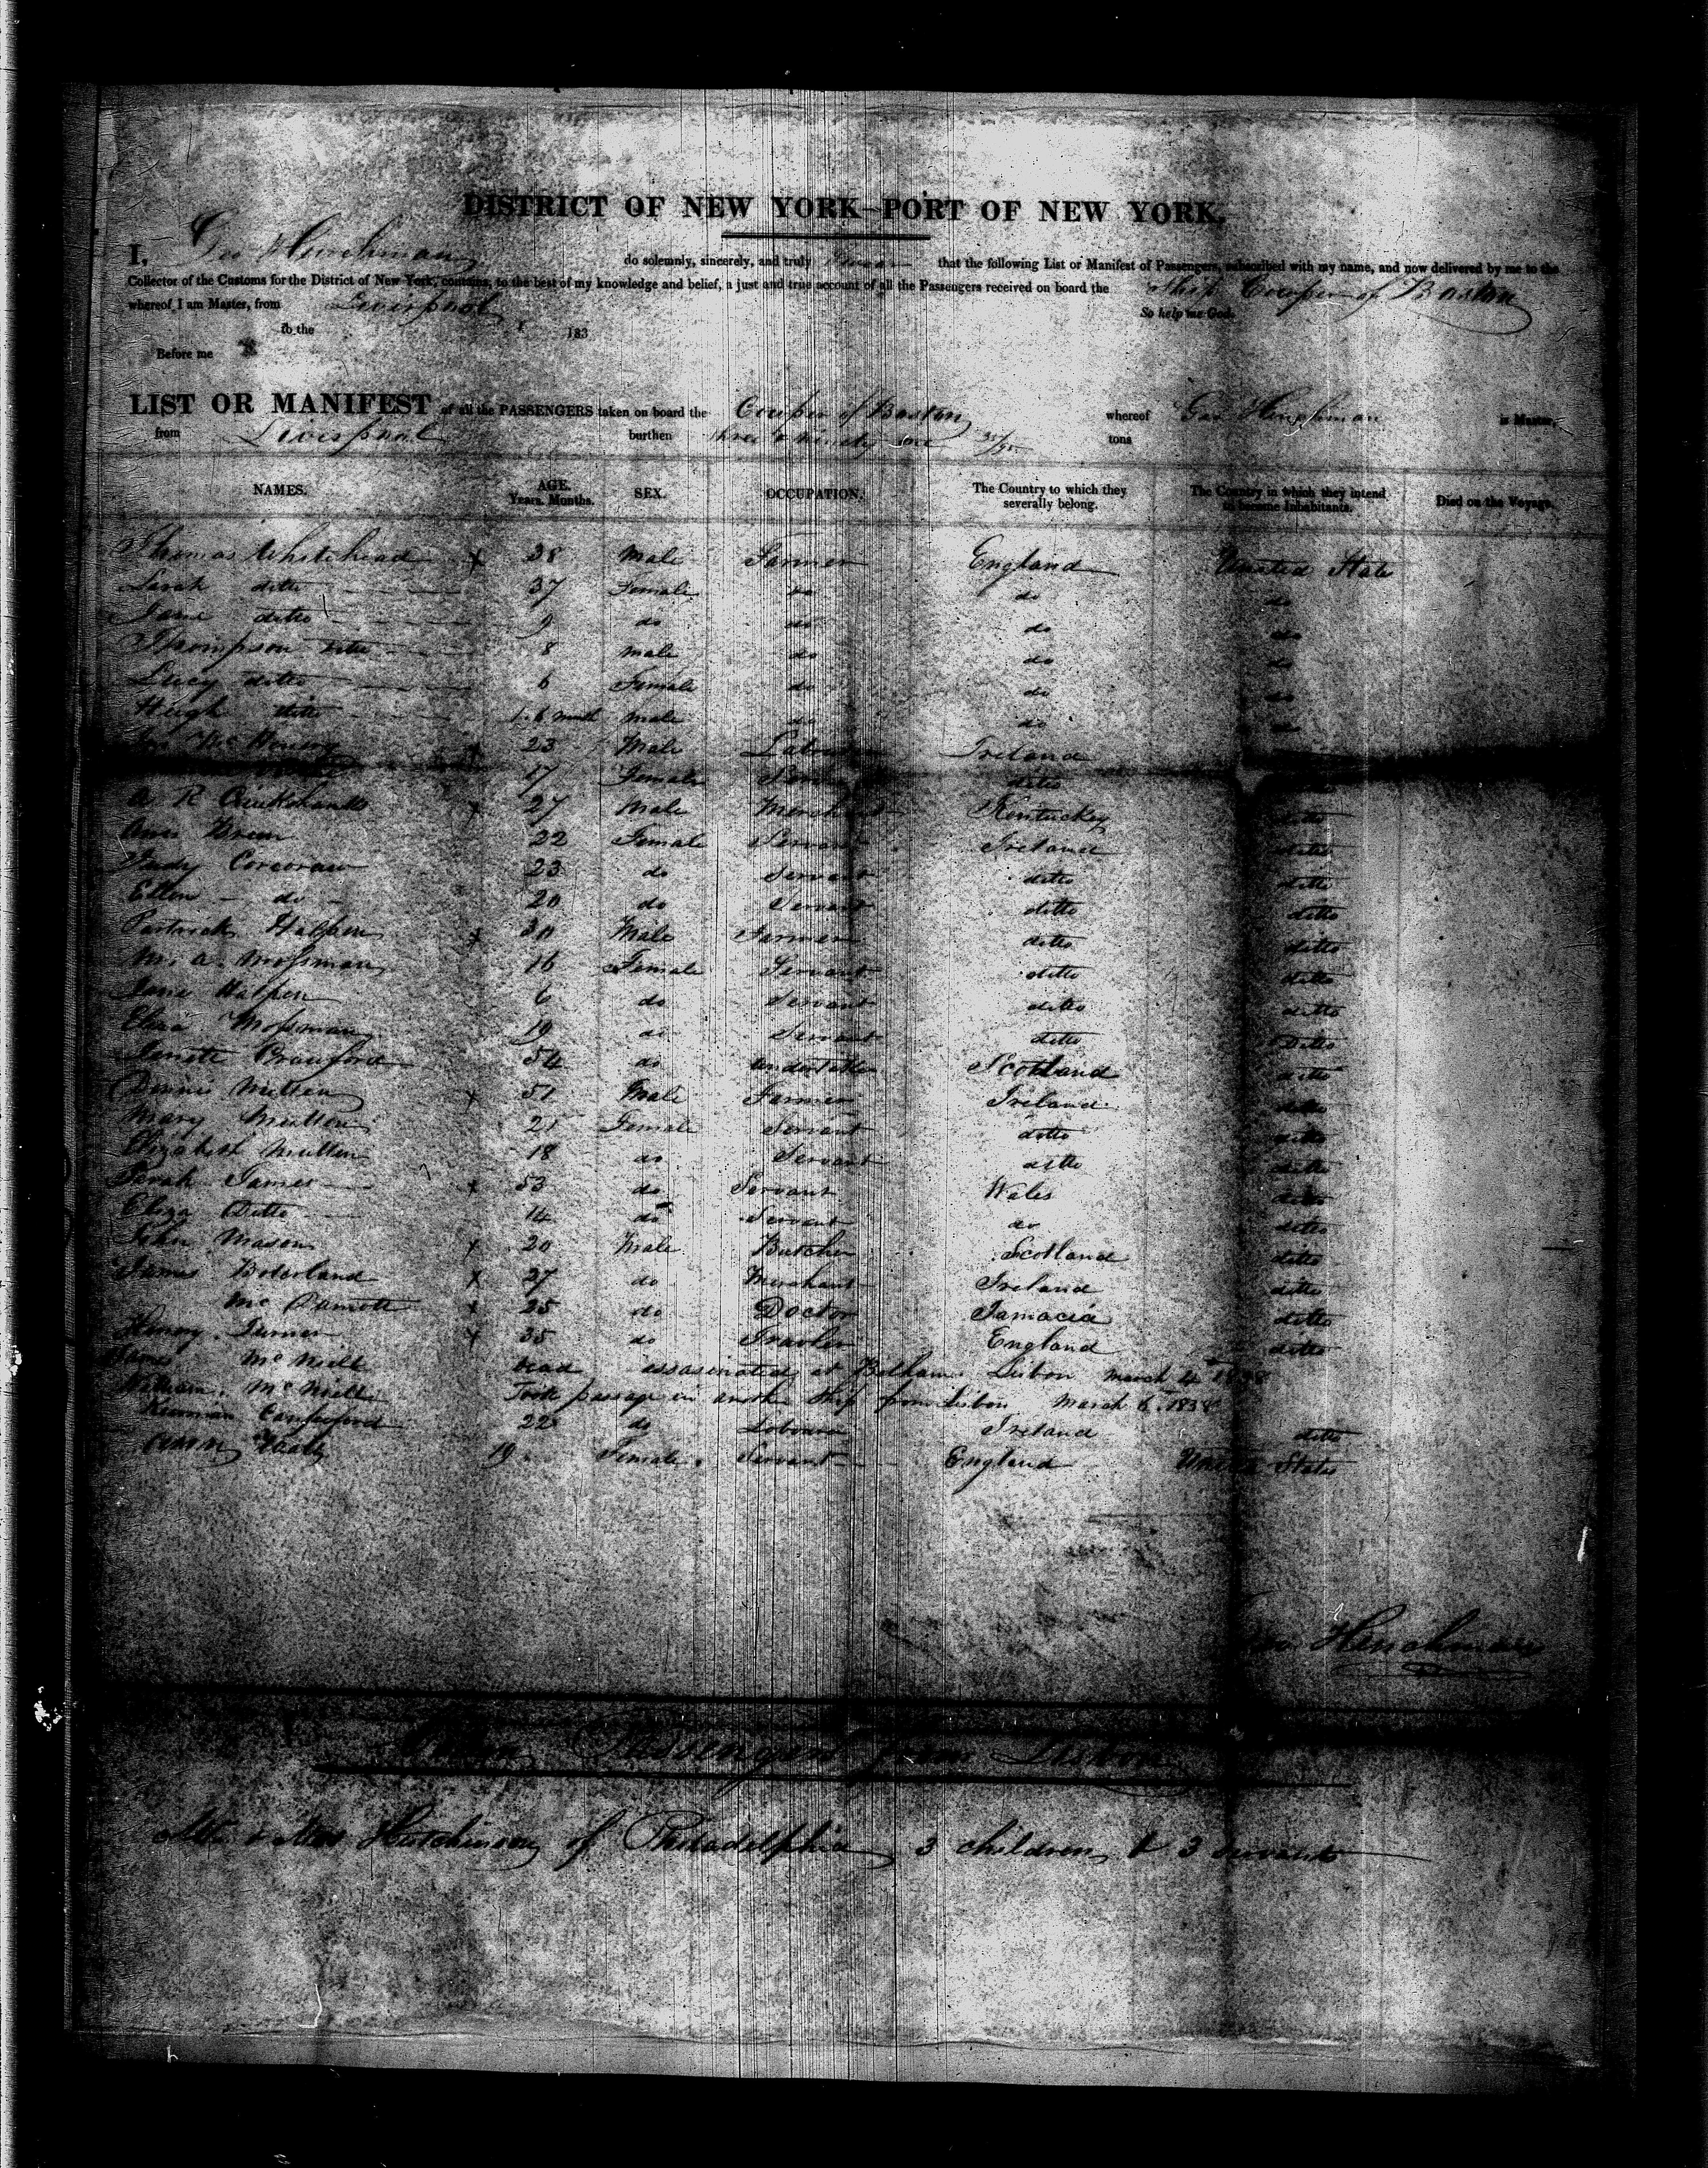 DISTRICT OF NEW YORK—PORT OF NEW YORK.
I, Geo Hinchman do solemnly, sincerely, and truly swear that the following List or Manifest of Passengers, subscribed with my name, and now delivered by me to the
Collector of the Customs for the District of New York, contains, to the best of my knowledge and belief, a just and true account of all the Passengers received on board the Ship Cowper of Boston
whereof I am Master, from Liverpool So help me God.
to the 183
Before me
LIST OR MANIFEST of all the PASSENGERS taken on board the Cowper of Boston whereof Geo Hinchman is Master,
from Liverpool burthen three & ninety one 35/95 tons
NAMES. AGE. Years. Months. SEX. OCCUPATION. The Country to which they severally belong. The Country in which they intend to become Inhabitants. Died on the Voyage.
Thomas Whitehead x 38 Male Farmer England United State
Sarah ditto 37 Female do do do
Jane ditto 9 do do do do
Thompson ditto 8 male do do do
Lucy ditto 6 Female do do do
Hugh ditto 1.6 month male do do do
23 Male Labourer Ireland
17 Female ditto
A R Cruikshanks x 27 Male Merchant Kentucky ditto
Ann 22 Female Servant Ireland ditto
Judy Corcoran 23 do Servant ditto ditto
Ellen do 20 do Servant ditto ditto
Partrick Halpen x 30 Male Farmer ditto ditto
M. a. Mossman 16 Female Servant ditto ditto
Jane Halpen 6 do Servant ditto ditto
Eliza Mossman 19 do Servant ditto Ditto
Janett Crawford 54 do Scotland ditto
Dennis Mullen x 51 Male Farmer Ireland ditto
Mary Mullen 21 Female Servant ditto ditto
Elizabeth Mullen 18 do Servant ditto ditto
Sarah James x 53 do Servant Wales ditto
Eliza Ditto 14 do Servant do ditto
John Mason x 20 Male Butcher Scotland ditto
James Boderland x 27 do Merchant Ireland ditto
Mc x 25 do Doctor Jamacia ditto
Henry Turner x 35 do England ditto
Jane McNiell dead assasinated at Bolham Lisbon march 4th 1838
William McNiell Took passage in another Ship from Lisbon March 6. 1838
22 do Labourer Ireland ditto
19 Female Servant England United States
Geo Hinchman
Passengers from Lisbon
Mr & Mrs Hutchinson of Philadelphia 3 children & 3 servants